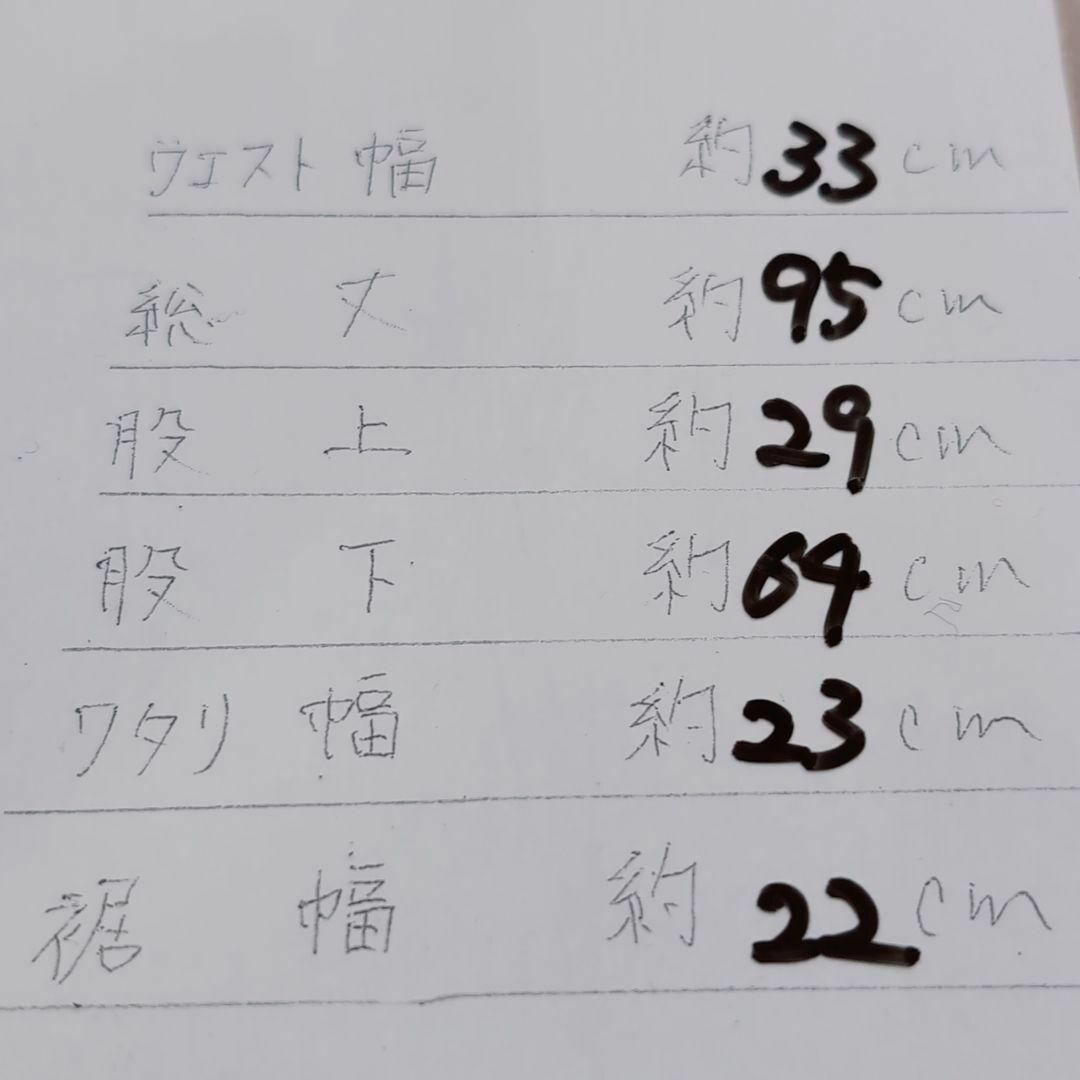 ウエスト幅 約33cm
総丈 約95cm
股上 約29cm
股下 約64cm
ワタリ幅 約23cm
裾幅 約22cm